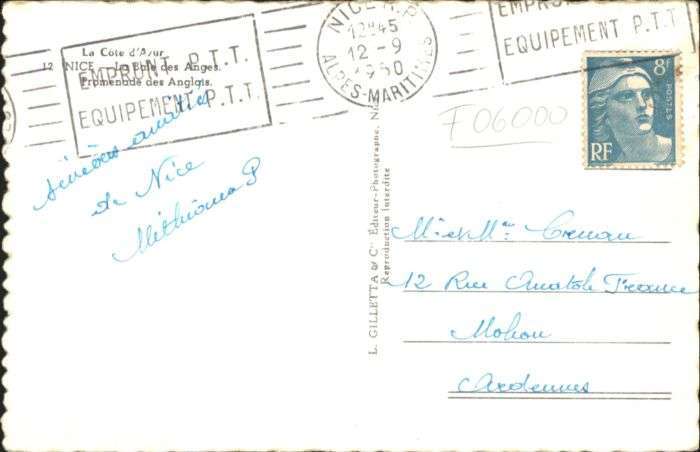 La Côte d'Azur
12 NICE - La Baie des Anges.
Promenade des Anglais.
EMPRUNT P.T.T.
EQUIPEMENT P.T.T.
NICE R.P.
12H45
12-9
1950
ALPES-MARITIMES
EMPRUNT P.T.T.
EQUIPEMENT P.T.T.
8F
POSTES
RF
F06000
Sincères amitiés
de Nice
L. GILLETTA & Cie Éditeur-Photographe, Nice
Reproduction interdite
Mr et Mme
12 Rue Anatole France
Mohon
Ardennes